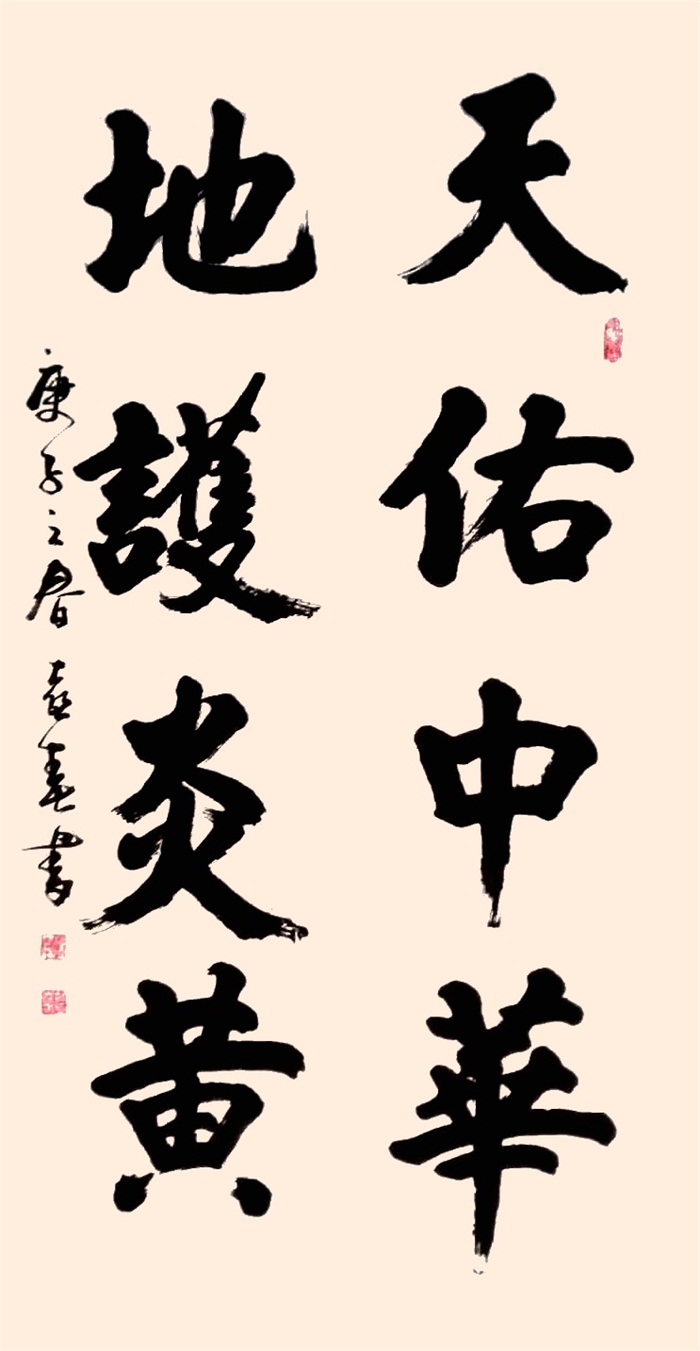 天佑中華
地護炎黄
庚子之春喜春書